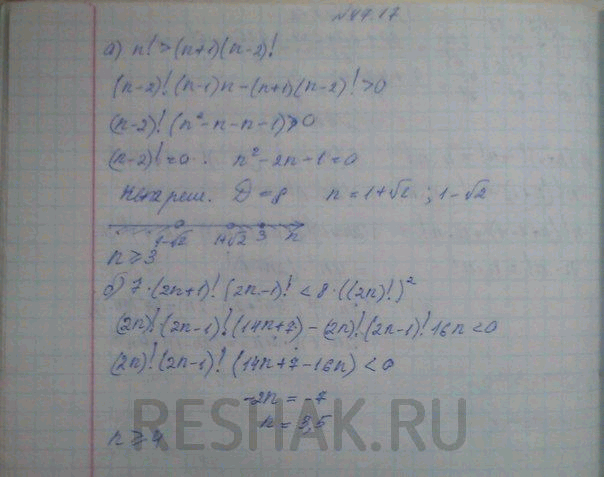 №47.17
а) n! > (n+1)(n-2)!
(n-2)! (n-1)n - (n+1)(n-2)! > 0
(n-2)! (n² - n - n - 1) > 0
(n-2)! = 0. n² - 2n - 1 = 0
реш. D = 8 n = 1+√2 ; 1-√2
1-√2 1+√2 3 n
n ≥ 3
б) 7·(2n+1)! (2n-1)! < 8·((2n)!)²
(2n)! (2n-1)! (14n+7) - (2n)! (2n-1)! 16n < 0
(2n)! (2n-1)! (14n+7-16n) < 0
-2n = -7
n = 3,5
n ≥ 4
RESHAK.RU